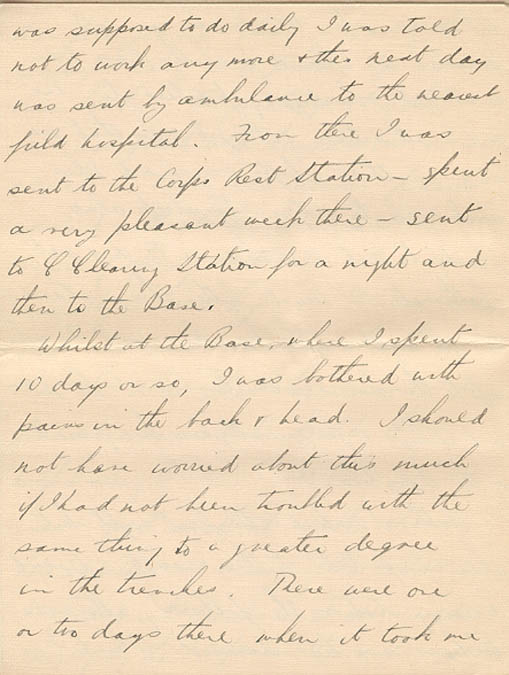 was supposed to do daily I was told
not to work any more & the next day
was sent by ambulance to the nearest
field hospital. From there I was
sent to the Corps Rest Station – spent
a very pleasant week there – sent
to C Clearing Station for a night and
then to the Base.
Whilst at the Base, where I spent
10 days or so, I was bothered with
pains in the back & head. I should
not have worried about this much
if I had not been troubled with the
same thing to a greater degree
in the trenches. There were one
or two days there when it took me